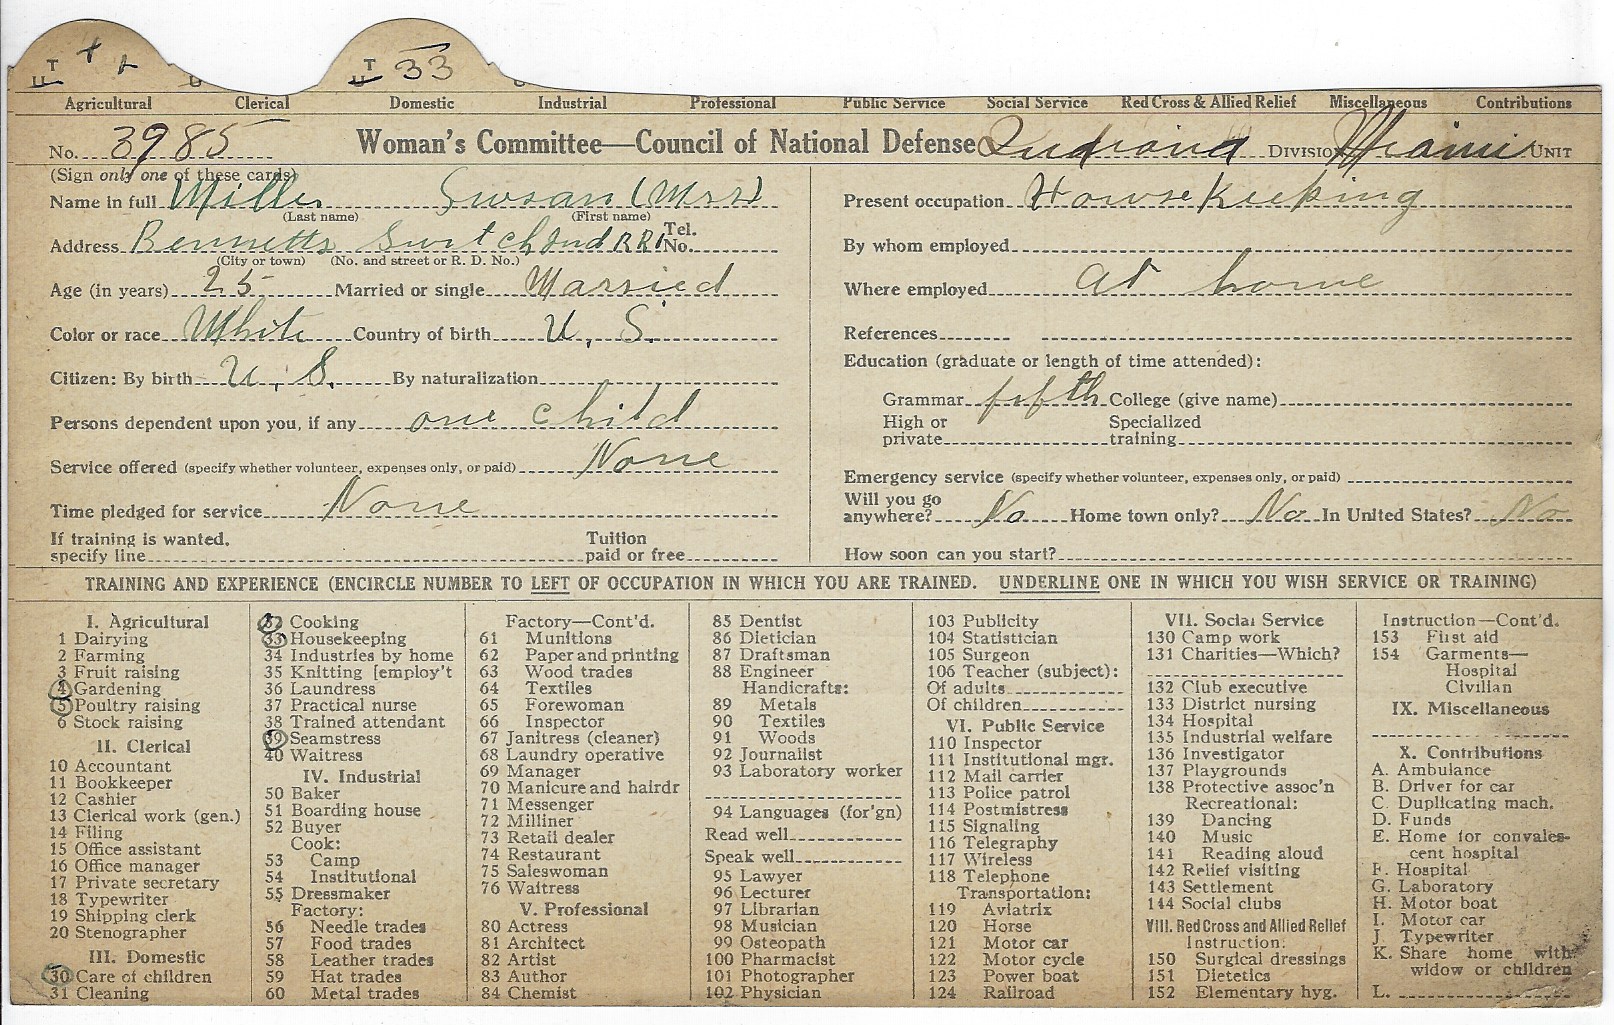 T 4 4
T 33
Agricultural Clerical Domestic Industrial Professional Public Service Social Service Red Cross & Allied Relief Miscellaneous Contributions
No. 3985 Woman's Committee—Council of National Defense Indiana DIVISION Miami UNIT
(Sign only one of these cards)
Name in full Miller Susan (Mrs) Present occupation Housekeeping
(Last name) (First name)
Address Bennetts Switch Ind RR1 Tel. No. By whom employed
(City or town) (No. and street or R. D. No.)
Age (in years) 25 Married or single Married Where employed at home
Color or race White Country of birth U. S. References
Education (graduate or length of time attended):
Citizen: By birth U. S. By naturalization
Grammar fifth College (give name)
Persons dependent upon you, if any one child High or private Specialized training
Service offered (specify whether volunteer, expenses only, or paid) None Emergency service (specify whether volunteer, expenses only, or paid)
Time pledged for service None Will you go anywhere? No Home town only? No In United States? No
If training is wanted, specify line Tuition paid or free How soon can you start?
TRAINING AND EXPERIENCE (ENCIRCLE NUMBER TO LEFT OF OCCUPATION IN WHICH YOU ARE TRAINED. UNDERLINE ONE IN WHICH YOU WISH SERVICE OR TRAINING)
I. Agricultural
1 Dairying
2 Farming
3 Fruit raising
4 Gardening
5 Poultry raising
6 Stock raising
II. Clerical
10 Accountant
11 Bookkeeper
12 Cashier
13 Clerical work (gen.)
14 Filing
15 Office assistant
16 Office manager
17 Private secretary
18 Typewriter
19 Shipping clerk
20 Stenographer
III. Domestic
30 Care of children
31 Cleaning
32 Cooking
33 Housekeeping
34 Industries by home
35 Knitting [employ't
36 Laundress
37 Practical nurse
38 Trained attendant
39 Seamstress
40 Waitress
IV. Industrial
50 Baker
51 Boarding house
52 Buyer
Cook:
53 Camp
54 Institutional
55 Dressmaker
Factory:
56 Needle trades
57 Food trades
58 Leather trades
59 Hat trades
60 Metal trades
Factory—Cont'd.
61 Munitions
62 Paper and printing
63 Wood trades
64 Textiles
65 Forewoman
66 Inspector
67 Janitress (cleaner)
68 Laundry operative
69 Manager
70 Manicure and hairdr
71 Messenger
72 Milliner
73 Retail dealer
74 Restaurant
75 Saleswoman
76 Waitress
V. Professional
80 Actress
81 Architect
82 Artist
83 Author
84 Chemist
85 Dentist
86 Dietician
87 Draftsman
88 Engineer
Handicrafts:
89 Metals
90 Textiles
91 Woods
92 Journalist
93 Laboratory worker
94 Languages (for'gn)
Read well
Speak well
95 Lawyer
96 Lecturer
97 Librarian
98 Musician
99 Osteopath
100 Pharmacist
101 Photographer
102 Physician
103 Publicity
104 Statistician
105 Surgeon
106 Teacher (subject):
Of adults
Of children
VI. Public Service
110 Inspector
111 Institutional mgr.
112 Mail carrier
113 Police patrol
114 Postmistress
115 Signaling
116 Telegraphy
117 Wireless
118 Telephone
Transportation:
119 Aviatrix
120 Horse
121 Motor car
122 Motor cycle
123 Power boat
124 Railroad
VII. Social Service
130 Camp work
131 Charities—Which?
132 Club executive
133 District nursing
134 Hospital
135 Industrial welfare
136 Investigator
137 Playgrounds
138 Protective assoc'n
Recreational:
139 Dancing
140 Music
141 Reading aloud
142 Relief visiting
143 Settlement
144 Social clubs
VIII. Red Cross and Allied Relief
Instruction:
150 Surgical dressings
151 Dietetics
152 Elementary hyg.
Instruction—Cont'd.
153 First aid
154 Garments—
Hospital
Civilian
IX. Miscellaneous
X. Contributions
A. Ambulance
B. Driver for car
C. Duplicating mach.
D. Funds
E. Home for convales-
cent hospital
F. Hospital
G. Laboratory
H. Motor boat
I. Motor car
J. Typewriter
K. Share home with
widow or children
L.